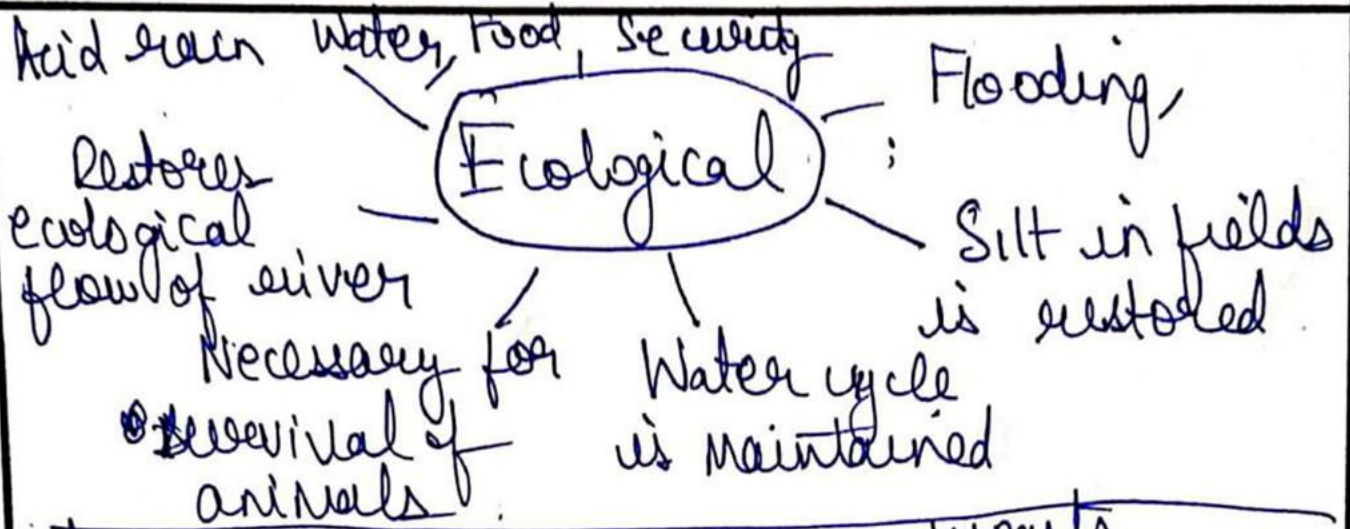 Acid rain Water, Food, Security
Flooding,
Ecological
Restores
ecological
flow of river
Silt in fields
is restored.
Necessary for
survival of
animals
Water cycle
is maintained